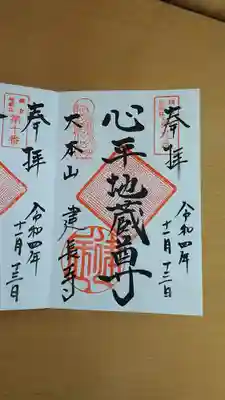 奉拝
心平地蔵尊
令和四年
十一月十三日
大本山 建長寺
第十番
奉拝
令和四年
十一月十三日